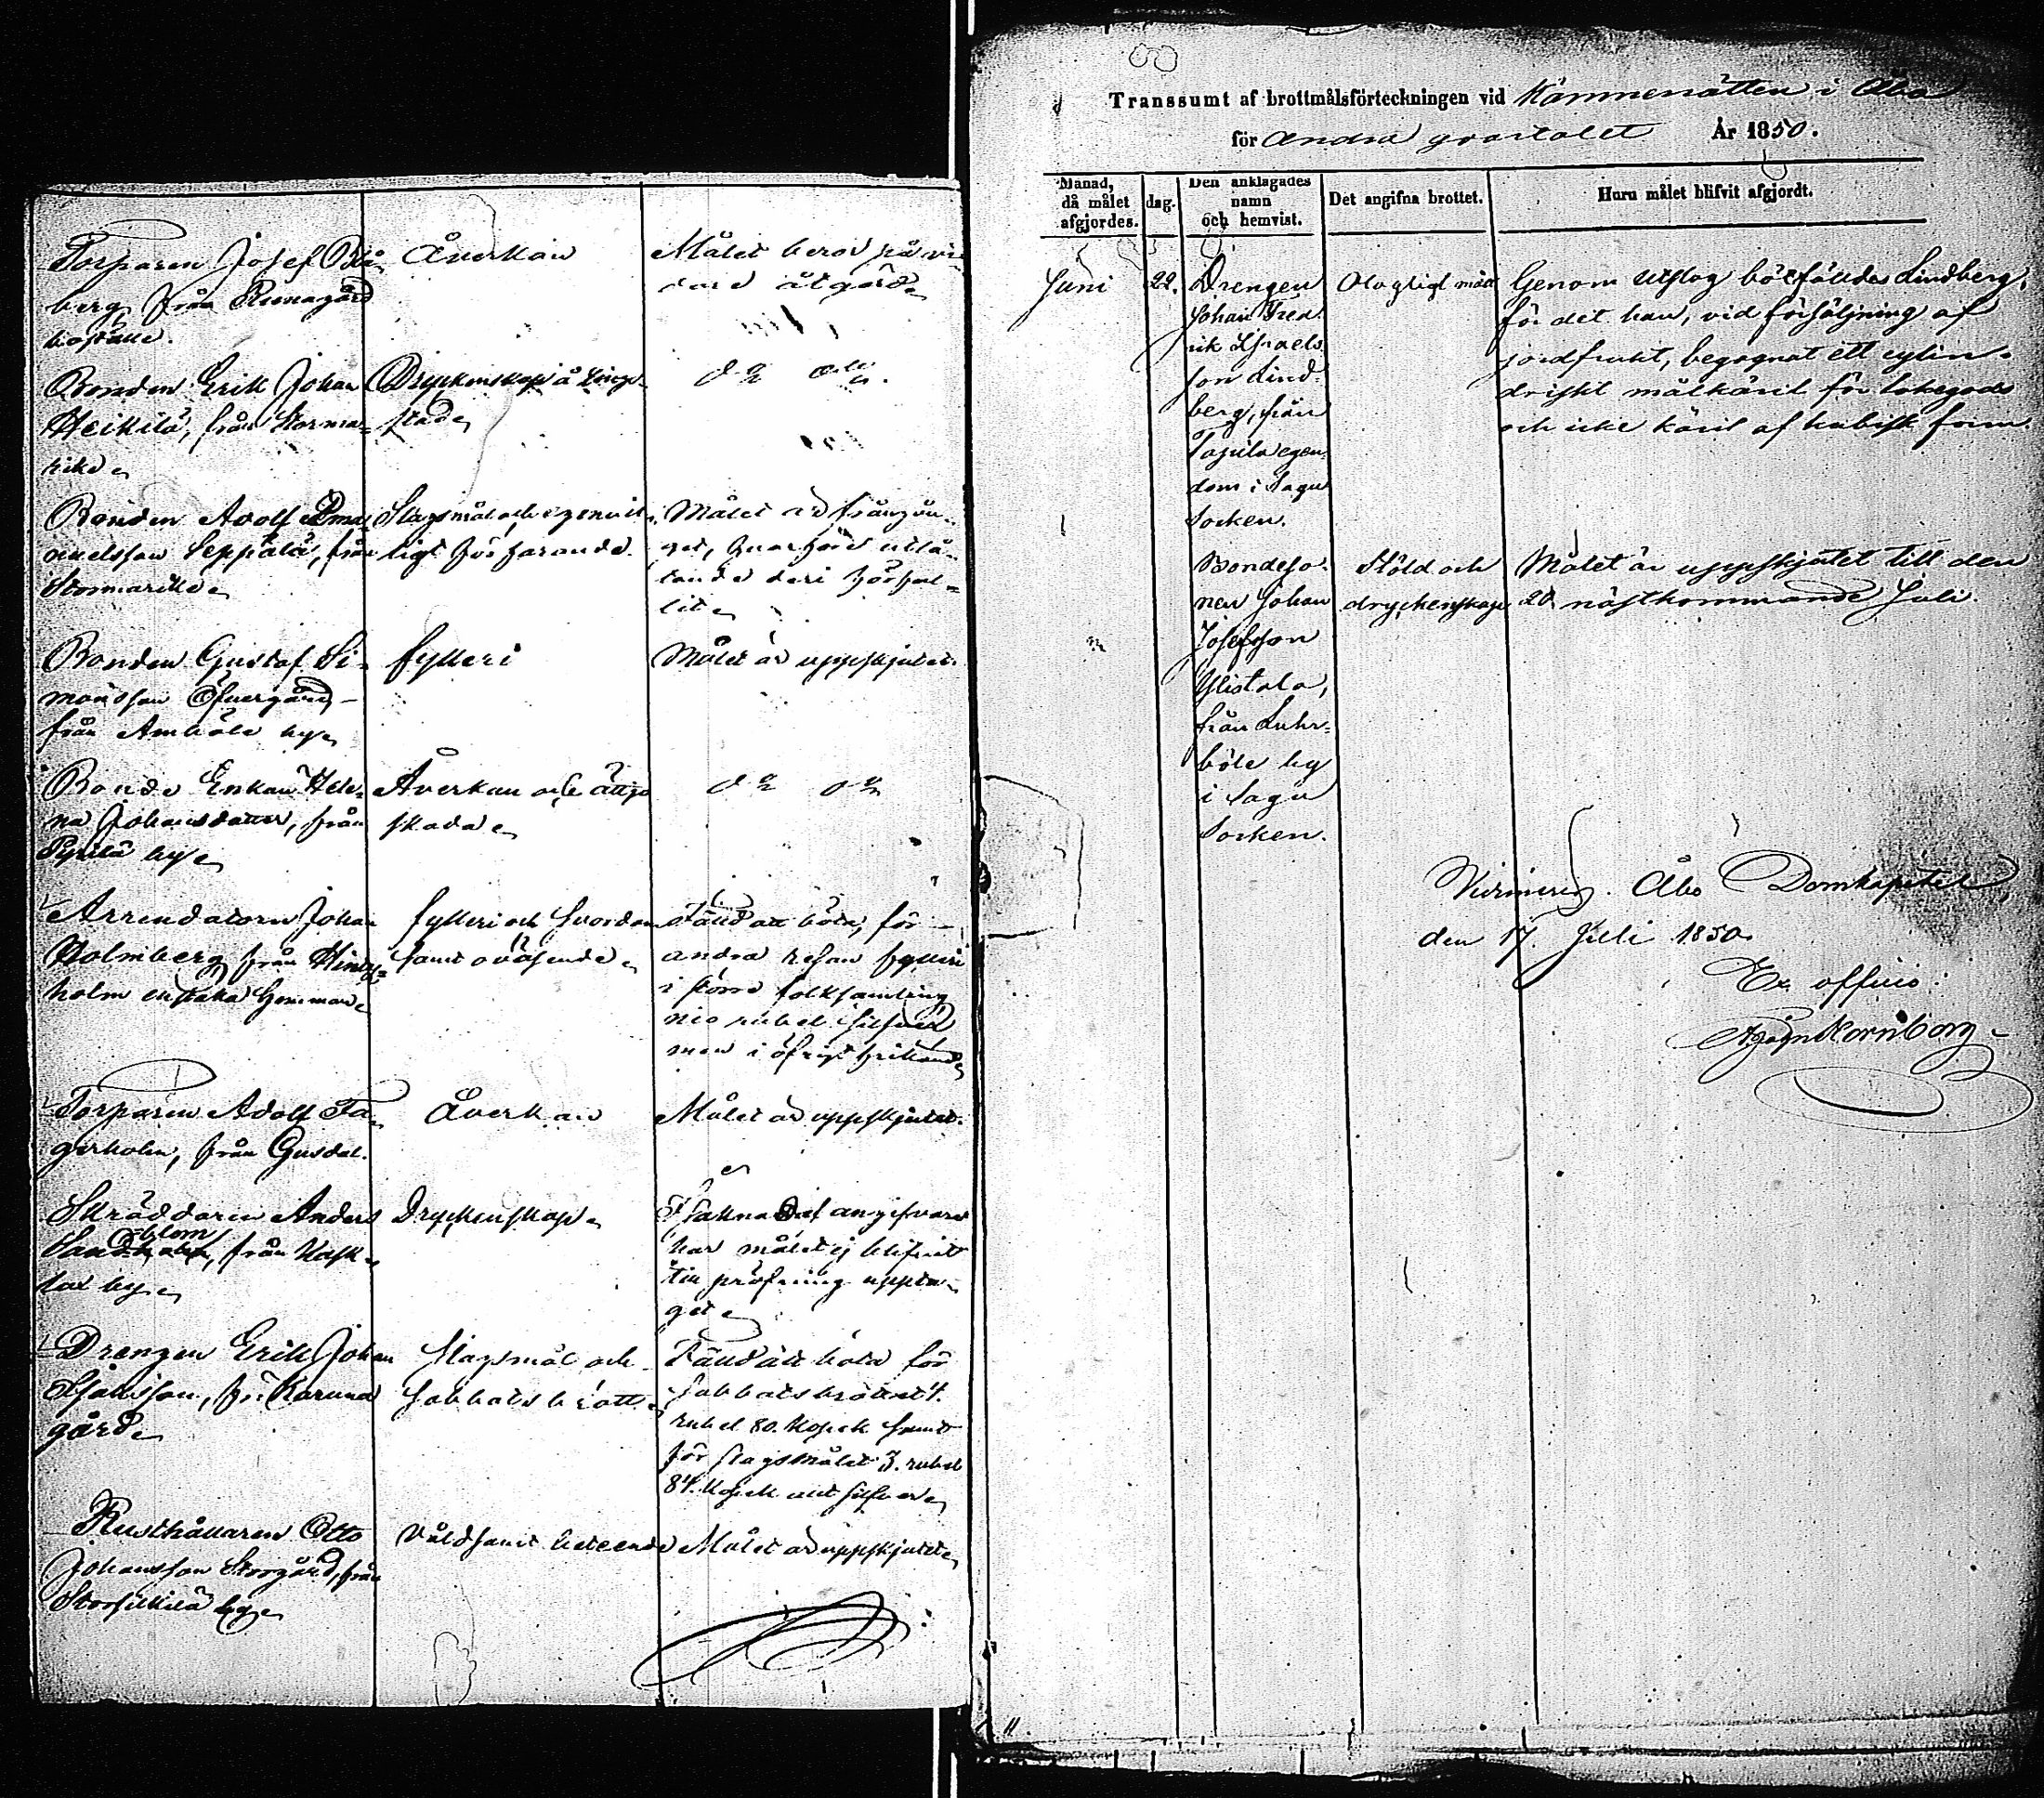 Torparen Josef Blå-
berg, från Runagård
boställe.
Åverkan
Målet beror på vi-
dare åtgärd
Bonden Erik Johan
Heikilä, från Storma-
rike
Dryckenskap å tings-
stad
d:o d:o
Bonden Adolf Ema-
nuelsson Seppälä, från
Stormarike
Slagsmål och egenvil-
ligt förfarande.
Målet är frångån-
get, hvarföre utlå-
tande deri förfal-
lit
Bonden Gustaf Si-
monsson Öfvergård
från Amböle by
fylleri
Målet är uppskjutet.
Bonde Enkan Hele-
na Johansdotter, från
Pyhilä by
Åverkan och
skada
d:o d:o
Arrendatorn Johan
Holmberg, från
holm enstaka Hemman
fylleri och svordom
samt oväsende
Fälld att böta, för
andra resan fylleri
i större folksamling
nio rubel silfver
men i öfrigt frikänd
Torparen Adolf Fa-
gerholm, från Gusdal.
Åverkan
Målet är uppskjutet.
Skräddaren Anders
Sandblom, från Kask-
by
Dryckenskap
I saknad af angifvare
har målet ej blifvit
till pröfning uppta-
get
Drengen Erik Johan
fr: Karuna
gård
Slagsmål och
sabbatsbrott
Fälld att böta för
sabbatsbrottet 4.
rubel 80. Kopek samt
för slagsmålet 3. rubel
84. Kopek allt silfver
Rusthållaren Otto
Johansson Storgård, från
Storheikilä by
Våldsamt beteende
Målet är uppskjutet
Transsumt af brottmålsförteckningen vid Kämnersrätten i Åbo
för andra qvartalet År 1850.
Månad,
då målet
afgjordes.
dag.
Den anklagades
namn
och hemvist.
Det angifna brottet.
Huru målet blifvit afgjordt.
Juni
22.
Drengen
Johan Fred-
rik Israels-
son Lind-
berg, från
Tapila egen-
dom i Sagu
Socken.
Olagligt mått
Genom Utslag bötfälldes Lindberg,
för det han, vid försäljning af
jordfrukt, begagnat ett cylin-
driskt målkäril för lökegods
och icke käril af kubisk form.
"
Bondeso-
nen Johan
Josefsson
Ylistalo,
från Luhr-
böle by
i Sagu
Socken.
Stöld och
dryckenskap
Målet är uppskjutet till den
20 nästkommande Juli.
Vidimeras. Åbo Domkapitel,
den 17. Juli 1850.
Ex officio: